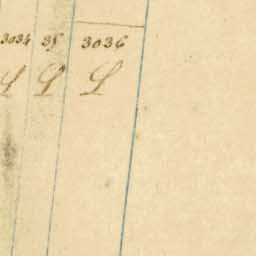 3034 35 3036
L L L